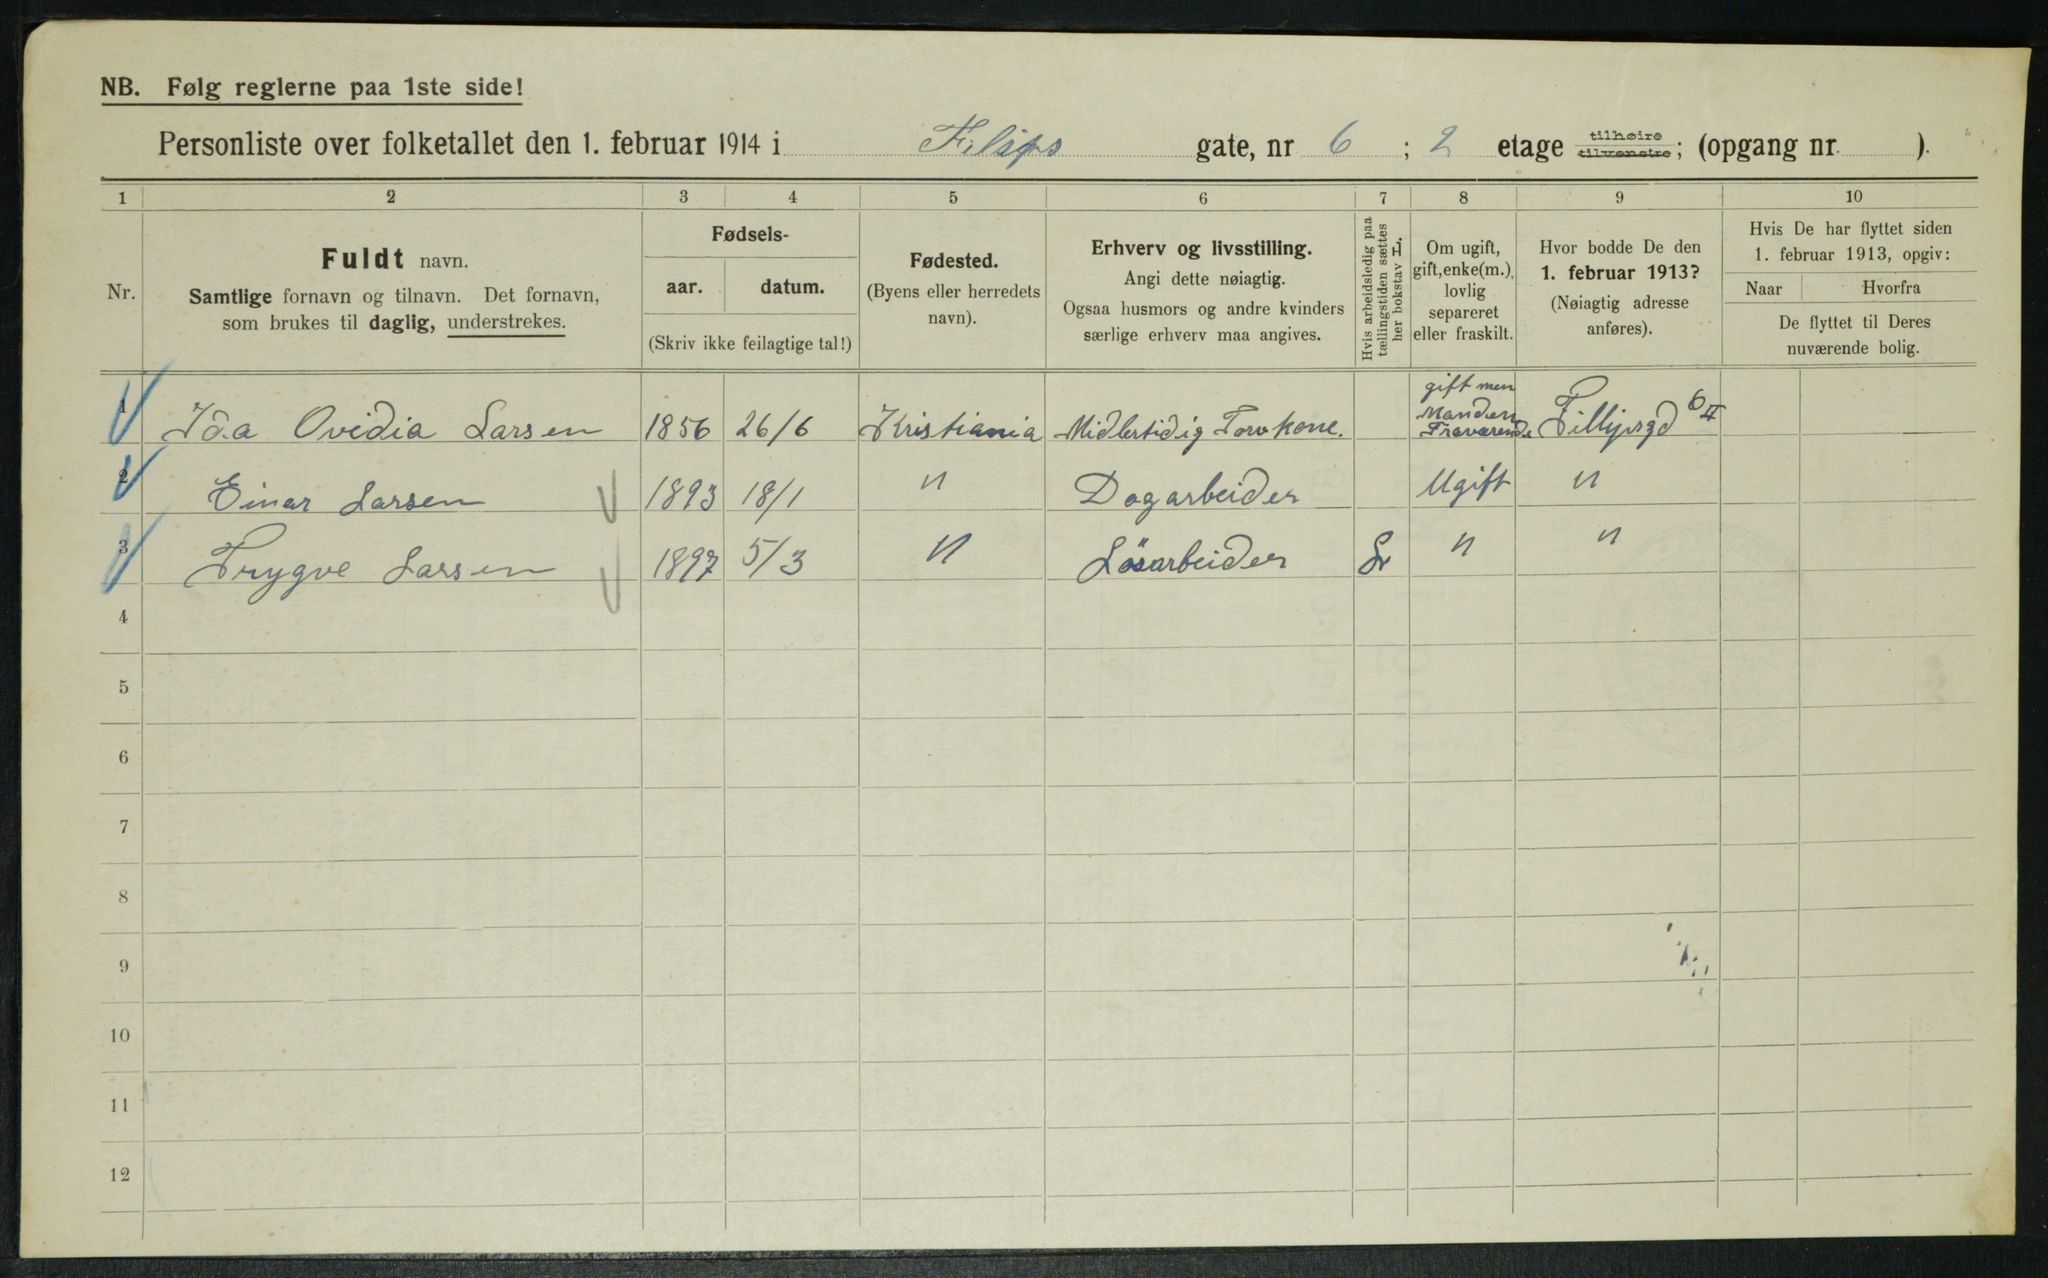 NB. Følg reglerne paa 1ste side!
Personliste over folketallet den 1. februar 1914 i Filips gate, nr 6 ; 2 etage tilhøire tilvenstre; (opgang nr. ).
1 2 3 4 5 6 7 8 9 10
Nr.
Fuldt navn.
Samtlige fornavn og tilnavn. Det fornavn,
som brukes til daglig, understrekes.
Fødsels-
aar. datum.
(Skriv ikke feilagtige tal!)
Fødested.
(Byens eller herredets
navn).
Erhverv og livsstilling.
Angi dette nøiagtig.
Ogsaa husmors og andre kvinders
særlige erhverv maa angives.
Hvis arbeidsledig paa
tællingstiden sættes
her bokstav L.
Om ugift,
gift, enke(m.),
lovlig
separeret
eller fraskilt.
Hvor bodde De den
1. februar 1913?
(Nøiagtig adresse
anføres).
Hvis De har flyttet siden
1. februar 1913, opgiv:
Naar Hvorfra
De flyttet til Deres
nuværende bolig.
1 Ida Ovidia Larsen 1856 26/6 Kristiania Midlertidig Torvkone. gift men Manden Fraværende Fillipsgd 6 II
2 Einar Larsen 1893 18/1 " Dagarbeider Ugift "
3 Trygve Larsen 1897 5/3 " Løsarbeider L " "
4
5
6
7
8
9
10
11
12